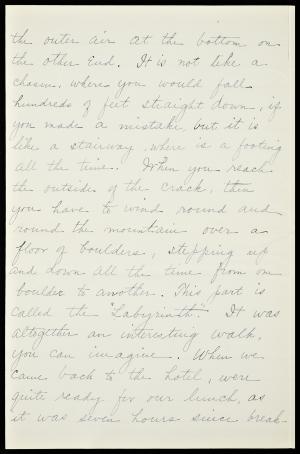 the outer air at the bottom on
the other End. It is not like a
chasm, where you would fall
hundreds of feet straight down, if
you made a mistake, but it is
like a stairway, where is a footing
all the time. When you reach
the outside of the crack, then
you have to wind round and
round the mountain over a
floor of boulders, stepping up
and down all the time from one
boulder to another. This part is
called the "Labyrinth". It was
altogether an interesting walk,
you can imagine. When we
came back to the hotel, were
quite ready for our lunch, as
it was seven hours since break-